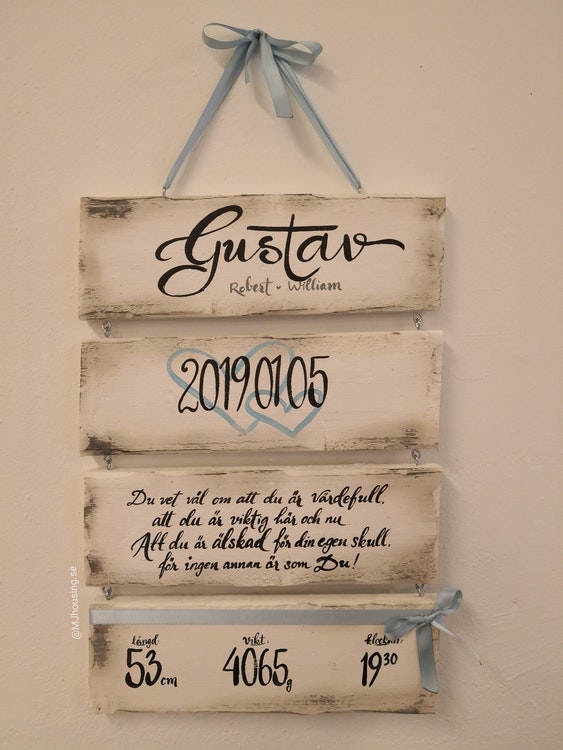 Gustav
Robert - William
20190105
Du vet väl om att du är värdefull.
att du är viktig här och nu
Att du är älskad för din egen skull.
för ingen annan är som Du!
Längd:
53 cm
Vikt:
4065 g
klockan:
19 30
@MJhousing.se